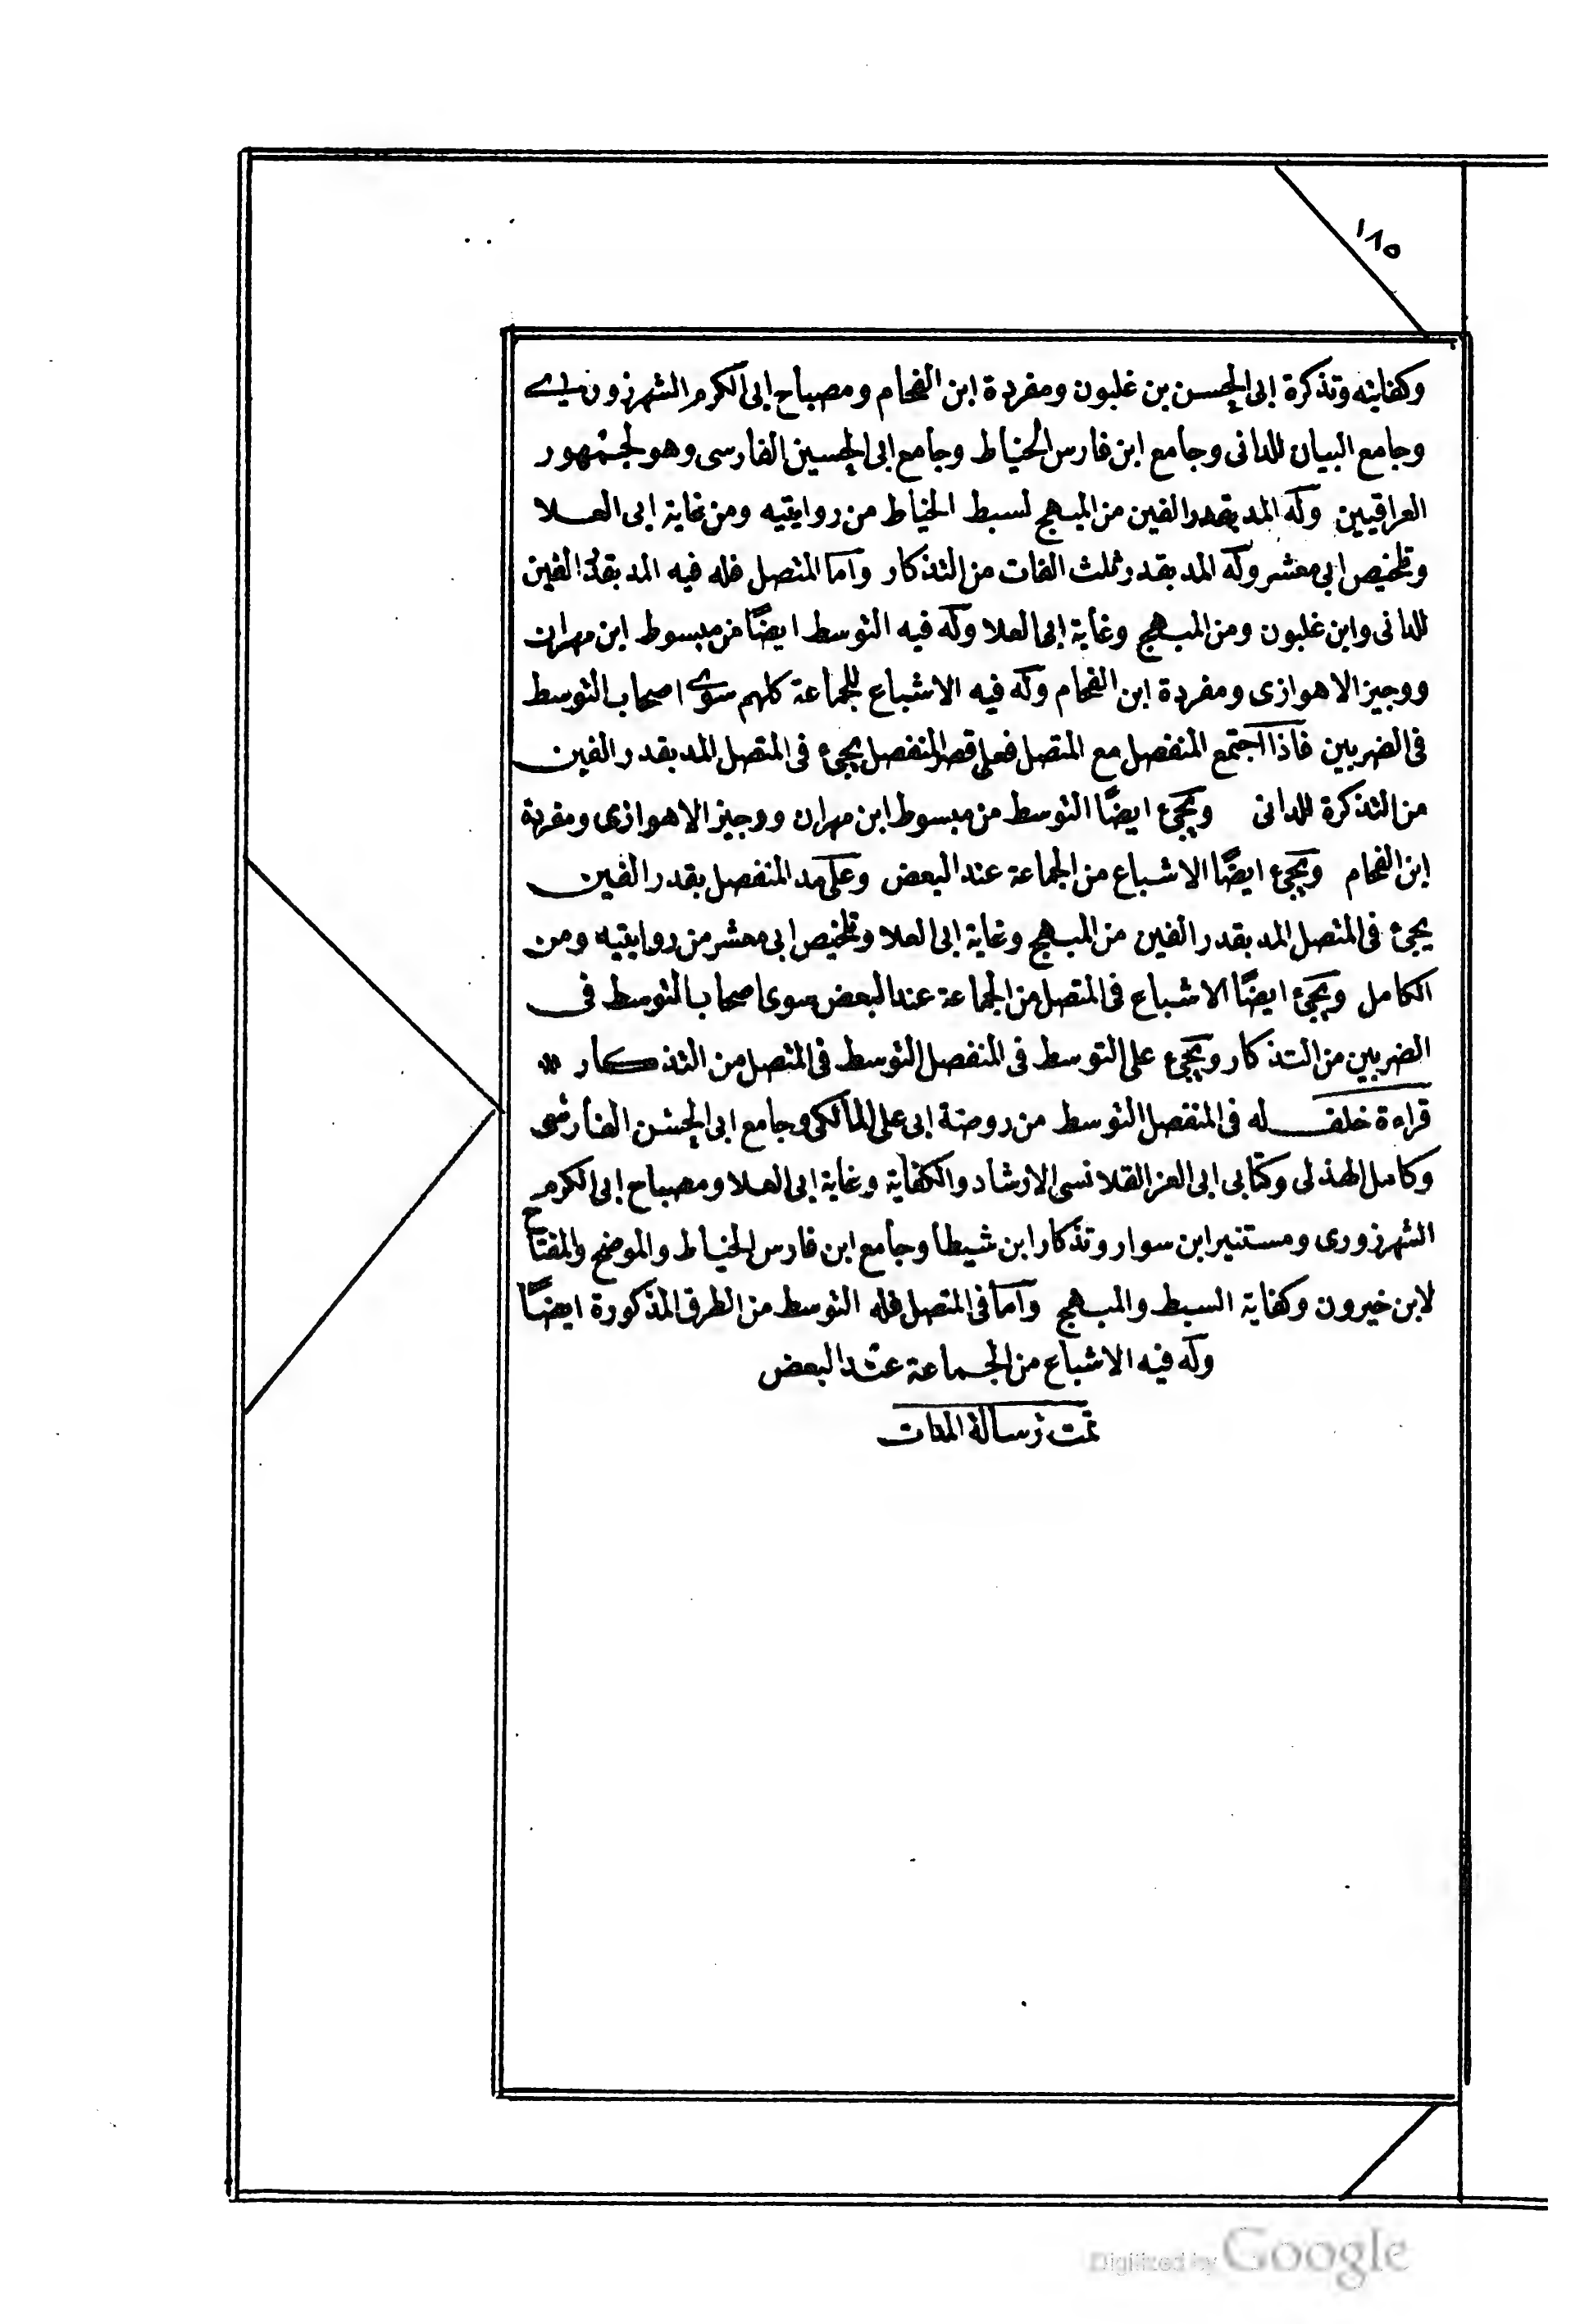 ١٨٥
وكفايته وتذكرة ابى الحسن بن غلبون ومفردة ابن الفحام ومصباح ابى الكرم الشهرزورى
وجامع البيان للدانى وجامع ابن فارس الخياط وجامع ابى الحسين الفارسى وهو لجمهور
العراقيين وله المد بقدر الفين من المبهج لسبط الخياط من روايتيه ومن غاية ابى العلا
وتلخيص ابى معشر وله المد بقدر ثلث الفات من التذكار واما المتصل فله فيه المد بقدر الفين
للدانى وابن غلبون ومن المبهج وغاية ابى العلا وله فيه التوسط ايضًا من مبسوط ابن مهران
ووجيز الاهوازى ومفردة ابن الفحام وله فيه الاشباع للجماعة كلهم سوى اصحاب التوسط
فى الضربين فاذا اجتمع المنفصل مع المتصل فعلى قصر المنفصل يجئ فى المتصل المد بقدر الفين
من التذكرة للدانى ويجئ ايضًا التوسط من مبسوط ابن مهران ووجيز الاهوازى ومفردة
ابن الفحام ويجئ ايضًا الاشباع من الجماعة عند البعض وعلى مد المنفصل بقدر الفين
يجئ فى المتصل المد بقدر الفين من المبهج وغاية ابى العلا وتلخيص ابى معشر من روايتيه ومن
الكامل ويجئ ايضًا الاشباع فى المتصل من الجماعة عند البعض سوى اصحاب التوسط فى
الضربين من التذكار ويجئ على التوسط فى المنفصل التوسط فى المتصل من التذكار
قراءة خلف له فى المنفصل التوسط من روضة ابى على المالكى وجامع ابى الحسن الفارسى
وكامل الهذلى وكتابى ابى العز القلانسى الارشاد والكفاية وغاية ابى العلا ومصباح ابى الكرم
الشهرزورى ومستنير ابن سوار وتذكار ابن شيطا وجامع ابن فارس الخياط والموضح والمفتاح
لابن خيرون وكفاية السبط والمبهج واما فى المتصل فله التوسط من الطرق المذكورة ايضًا
وله فيه الاشباع من الجماعة عند البعض
تمت رسالة المدات
Digitized by Google